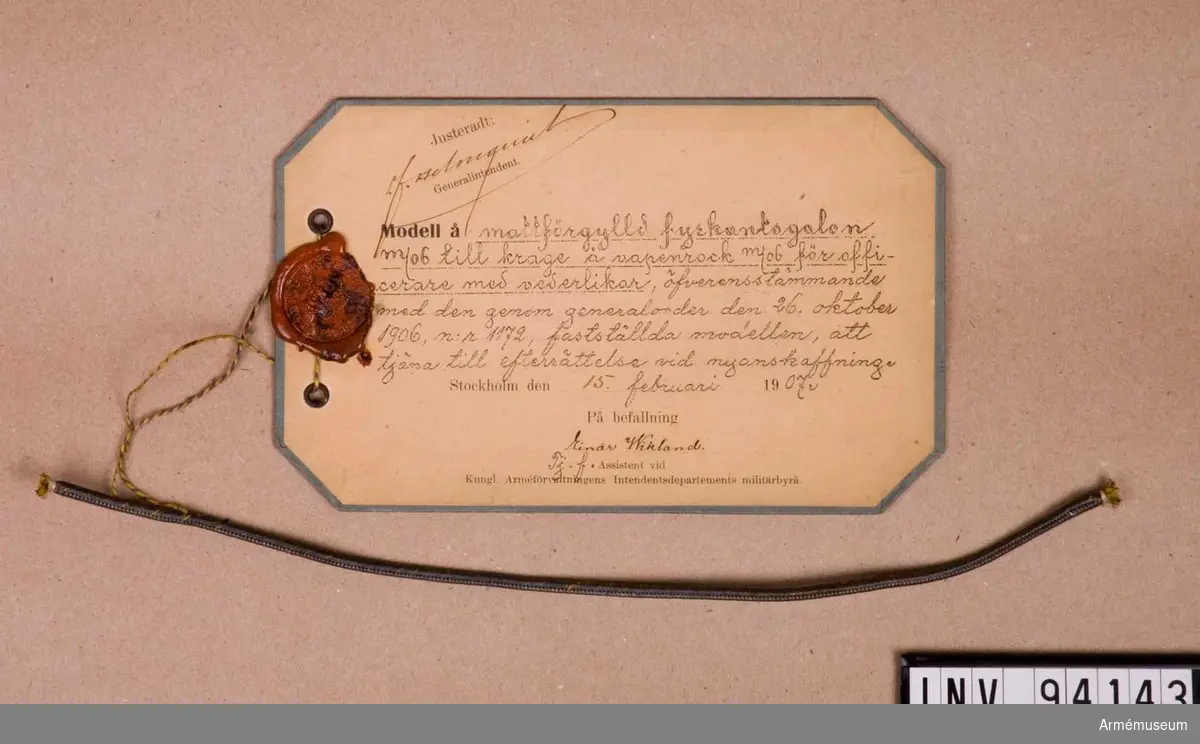 Justeradt:
Generalintendent.
Modell å mattförgylld fyrkantsgalon
m/06 till krage å vapenrock m/06 för offi-
cerare med vederlikar, öfverensstämmande
med den genom generalorder den 26. oktober
1906, n:r 1172, fastställda modellen, att
tjäna till efterrättelse vid nyanskaffning.
Stockholm den 15. februari 1907.
På befallning
Einar Wikland.
Tj. f. Assistent vid
Kungl. Arméförvaltningens Intendentsdepartements militärbyrå.
INV 94143
Armémuseum